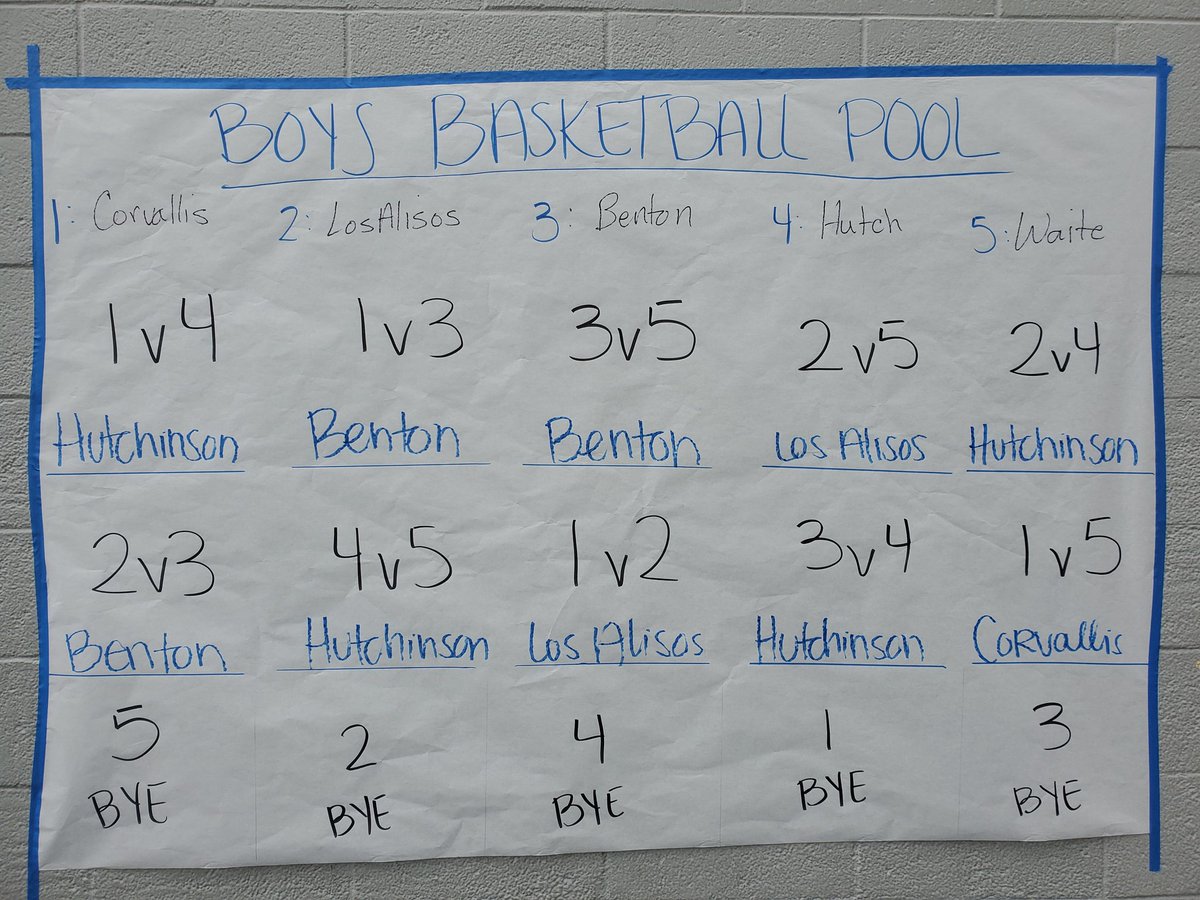 BOYS BASKETBALL POOL
1: Corvallis 2: Los Alisos 3: Benton 4: Hutch 5: Waite
1 v 4 1 v 3 3 v 5 2 v 5 2 v 4
Hutchinson Benton Benton Los Alisos Hutchinson
2 v 3 4 v 5 1 v 2 3 v 4 1 v 5
Benton Hutchinson Los Alisos Hutchinson Corvallis
5 2 4 1 3
BYE BYE BYE BYE BYE